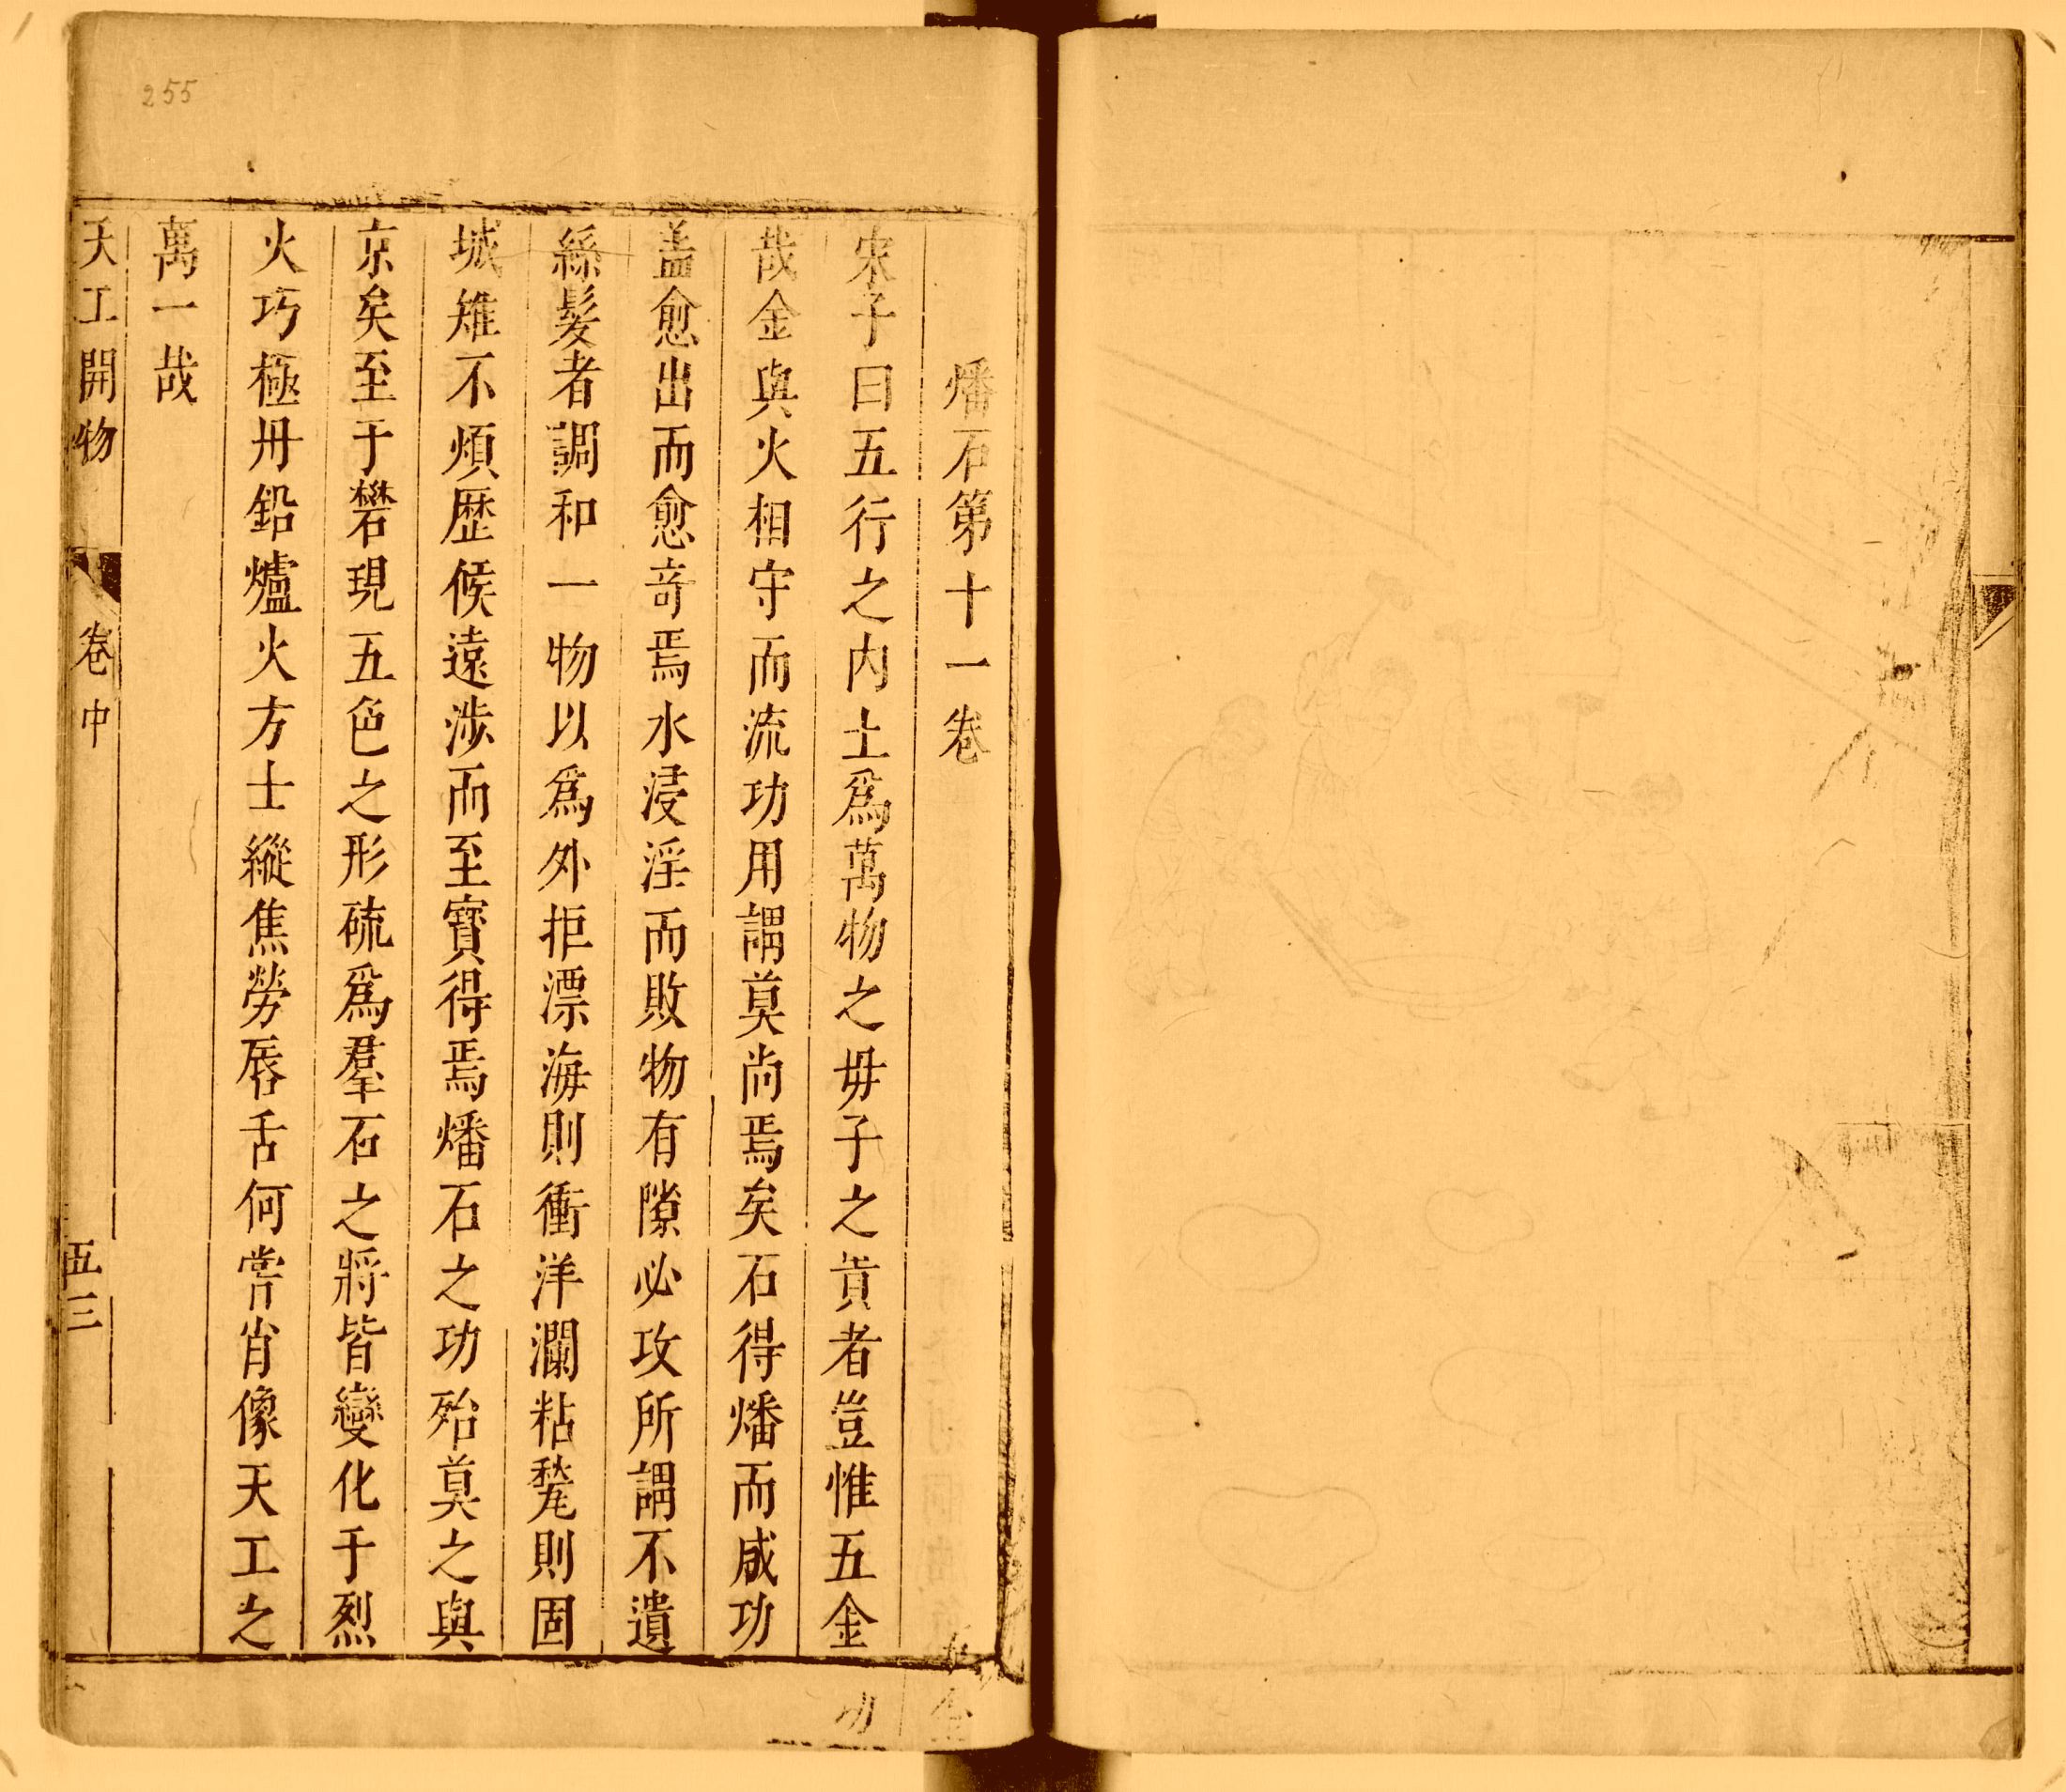 燔石第十一卷
宋子曰五行之內土爲萬物之毋子之貴者豈惟五金
哉金與火相守而流功用謂莫尚焉矣石得燔而咸功
盖愈出而愈竒焉水浸淫而敗物有隙必攻所謂不遺
絲髮者調和一物以爲外拒漂海則衝洋瀾粘甃則固
城雉不煩歷候遠涉而至寳得焉燔石之功殆莫之與
京矣至于礬現五色之形硫爲羣石之將皆變化于烈
火巧極丹鉛爐火方士縱焦勞唇舌何嘗肖像天工之
萬一哉
天工開物 卷中 五三
255